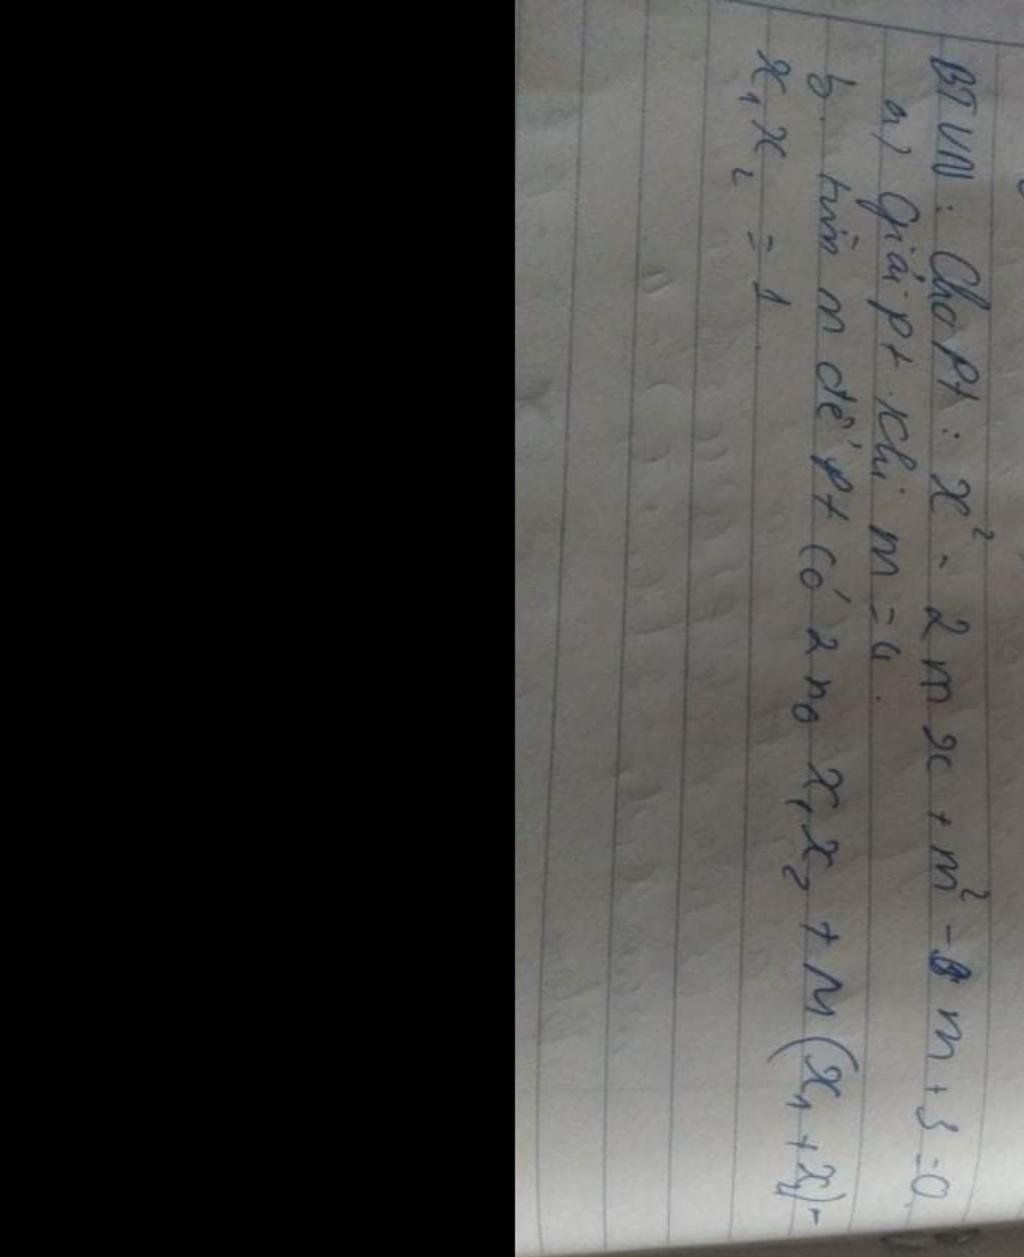 BTVN: Cho pt: x² - 2mx + m² - m + 3 = 0
a) Giải pt khi m = 4.
b. tìm m để pt có 2 no x₁x₂ + m(x₁ + x₂) -
x₁x₂ = 1